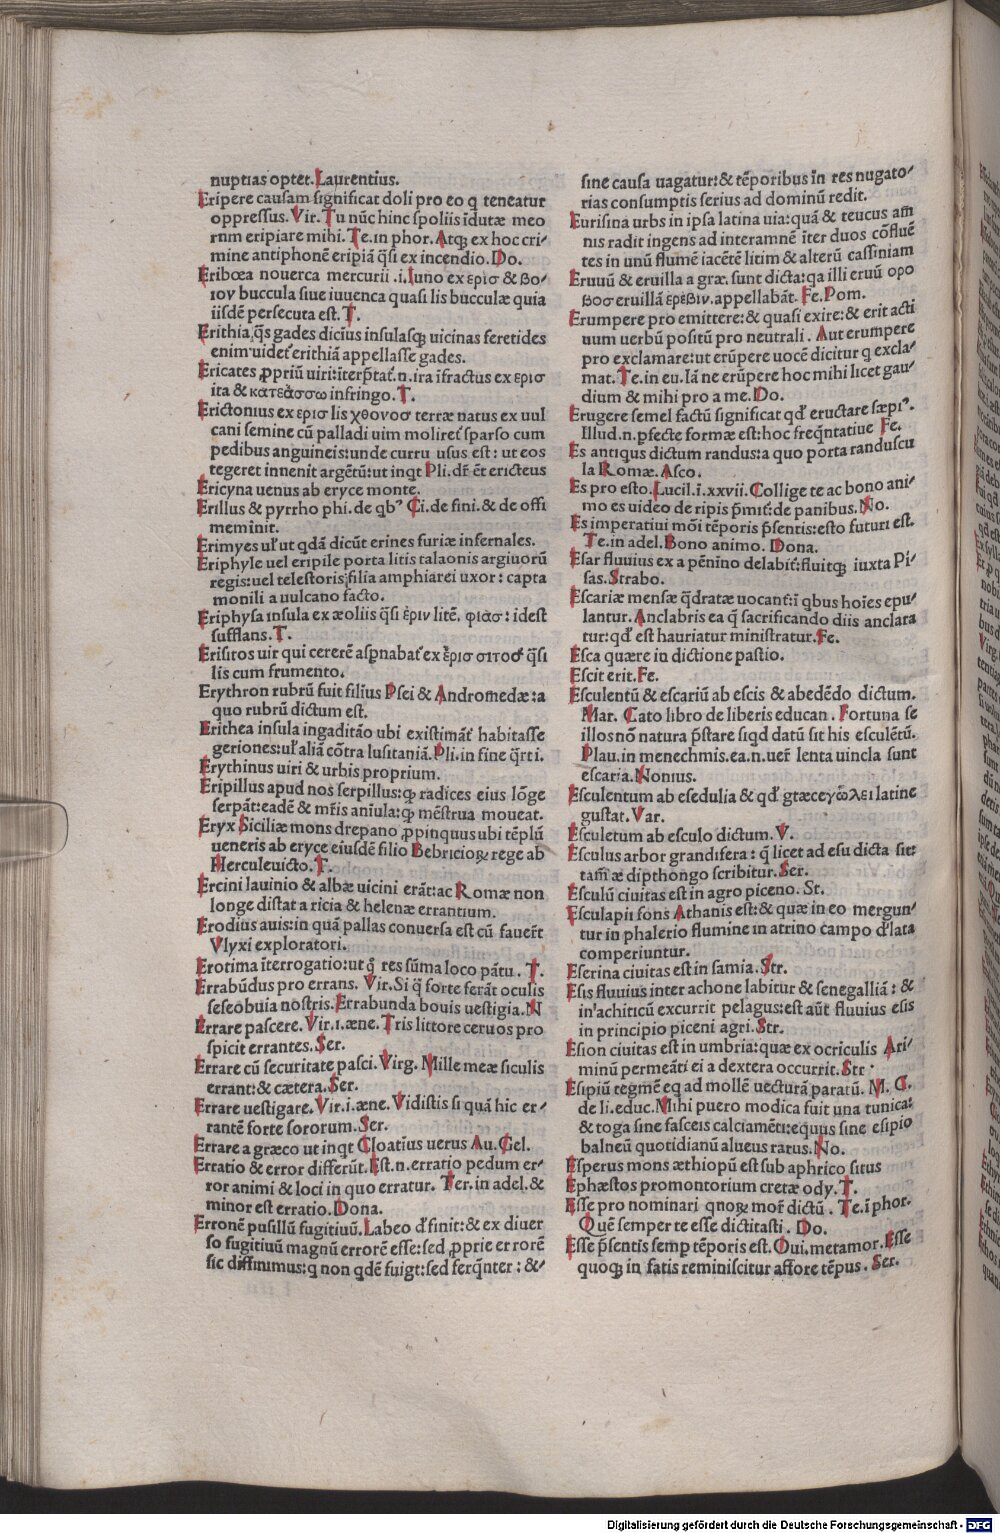 nuptias optet. Laurentius.
Eripere causam significat doli pro eo q̄ teneatur
oppressus. Vir. Tu nūc hinc spoliis īdutæ meo
rnm eripiare mihi. Te. in phor. Atq; ex hoc cri/
mine antiphonē eripiā q̄si ex incendio. Do.
Eribœa nouerca mercurii .i. Iuno ex ερισ & βο/
ιου buccula siue iuuenca quasi lis bucculæ quia
iisdē persecuta est. T.
Erithia, q̄s gades dicius insulasq; uicinas feretides
enim uidet̄ erithiā appellasse gades.
Ericates ꝓpriū uiri: īterp̄tat̄ .n. ira īfractus ex ερισ
ita & κατεάσσω infringo. T.
Erictonius ex ερισ lis χθονοσ terræ natus ex uul
cani semine cū palladi uim moliret̄ sparso cum
pedibus anguineis: unde curru usus est: ut eos
tegeret innenit argētū: ut inqt Pli. dr̄ ēt ericteus
Ericyna uenus ab eryce monte.
Erillus & pyrrho phi. de qb' Ci. de fini. & de offi
meminit.
Erimyes ul̄ ut qdā dicūt erines furiæ infernales.
Eriphyle uel eripile porta litis talaonis argiuorū
regis: uel telestoris, filia amphiarei uxor: capta
monili a uulcano facto.
Eriphysa insula ex æoliis q̄si ἐριν litē. φισασ: idest
sufflans. T.
Erisitos uir qui cererē asp̄nabat̄ ex ἔρισ σιτοσ q̄si
lis cum frumento.
Erythron rubrū fuit filius Psci & Andromedæ: a
quo rubrū dictum est.
Erithea insula ingaditāo ubi existimāt̄ habitasse
geriones: ul̄ aliā cōtra lusitaniā. Pli. in fine q̄rti.
Erythinus uiri & urbis proprium.
Eripillus apud nos serpillus: q; radices eius lōge
serpāt: eadē & mr̄is aniula: q; mēstrua moueat.
Eryx Siciliæ mons drepano ꝓpinquus ubi tēplū
ueneris ab eryce eiusdē filio Bebricioꝝ rege ab
Herculeuicto. T.
Ercini lauinio & albæ uicini erāt: ac Romæ non
longe distat a ricia & helenæ errantium.
Erodius auis: in quā pallas conuersa est cū faueret
Vlyxi exploratori.
Erotima īterrogatio: ut q̄ res sūma loco pātu. T.
Errabūdus pro errans. Vir. Si q̄ forte ferāt oculis
seseobuia nostris. Errabunda bouis uestigia. N
Errare pascere. Vir. i. æne. Tris littore ceruos pro
spicit errantes. Ser.
Errare cū securitate pasci. Virg. Mille meæ siculis
errant: & cætera. Ser.
Errare uestigare. Vir. i. æne. Vidistis si quā hic er/
rantē forte sororum. Ser.
Errare a græco ut inqt Cloatius uerus Au. Gel.
Erratio & error differūt. Est .n. erratio pedum er/
ror animi & loci in quo erratur. Ter. in adel. &
minor est erratio. Dona.
Erronē pusillū fugitiuū. Labeo d̄finit: & ex diuer
so fugitiuū magnū errorē esse: sed ꝓprie errorē
sic diffinimus: q non qdē fuigt: sed ferq̄nter : &/
sine causa uagatur: & tēporibus īn res nugato/
rias consumptis serius ad dominū redit.
Eurisina urbs in ipsa latina uia: quā & teucus am̄
nis radit ingens ad interamnē īter duos cōfluē
tes in unū flumē iacētē litim & alterū cassiniam
Eruuū & eruilla a græ. sunt dicta: qa illi eruū ορο
βοσ eruillā ἐρέβιν. appellabāt. Fe. Pom.
Erumpere pro emittere: & quasi exire: & erit acti
uum uerbū positū pro neutrali . Aut erumpere
pro exclamare: ut erūpere uocē dicitur q excla/
mat. Te. in eu. Iā ne erūpere hoc mihi licet gau/
dium & mihi pro a me. Do.
Erugere semel factū significat qd̄ eructare sæpi'.
Illud .n. pfecte formæ est: hoc freq̄ntatiue Fe.
Es antiqus dictum randus: a quo porta randuscu
la Romæ. Asco.
Es pro esto. Lucil. ī. xxvii. Collige te ac bono ani/
mo es uideo de ripis p̄mit̄: de panibus. No.
Es imperatiui mōi tēporis p̄sentis: esto futuri est.
Te. in adel. Bono animo. Dona.
Esar fluuius ex a pēnino delabit̄: fluitq; iuxta Pi/
sas. Strabo.
Escariæ mensæ q̄dratæ uocant̄: ī qbus hoīes epu/
lantur. Anclabris ea q̄ sacrificando diis anclata
tur: qd̄ est hauriatur ministratur. Fe.
Esca quære in dictione pastio.
Escit erit. Fe.
Esculentū & escariū ab escis & abedēdo dictum.
Mar. Cato libro de liberis educan. Fortuna se
illos nō natura p̄stare siqd datū sit his esculētū.
Plau. in menechmis. ea .n. uer̄ lenta uincla sunt
escaria. Nonius.
Esculentum ab esedulia & qd̄ gtæce γῶλει latine
gustat. Var.
Esculetum ab esculo dictum. V.
Esculus arbor grandifera: q̄ licet ad esu dicta sit:
tam̄ æ dipthongo scribitur. Ser.
Esculū ciuitas est in agro piceno. St.
Esculapii fons Athanis est: & quæ in eo mergun/
tur in phalerio flumine in atrino campo d̄lata
comperiuntur.
Eserina ciuitas est in samia. Str.
Esis fluuius inter achone labitur & senegalliā: &
in'achiticū excurrit pelagus: est aūt fluuius esis
in principio piceni agri. Str.
Esion ciuitas est in umbria: quæ ex ocriculis Ari/
minū permeāti ei a dextera occurrit. Str.
Esipiū tegmē eq ad mollē uecturā paratū. M. C.
de li. educ. Mihi puero modica fuit una tunica:
& toga sine fasceis calciamēti: equus sine esipio
balneū quotidianū alueus ratus. No.
Esperus mons æthiopū est sub aphrico situs
Ephæstos promontorium cretæ ody. T.
Esse pro nominari qnoꝝ mor̄ dictū . Te. ī phor.
Quē semper te esse dictitasti . Do.
Esse p̄sentis semp tēporis est. Oui. metamor. Esse
quoq; in fatis reminiscitur affore tēpus. Ser.
Digitalisierung gefördert durch die Deutsche Forschungsgemeinschaft - DFG